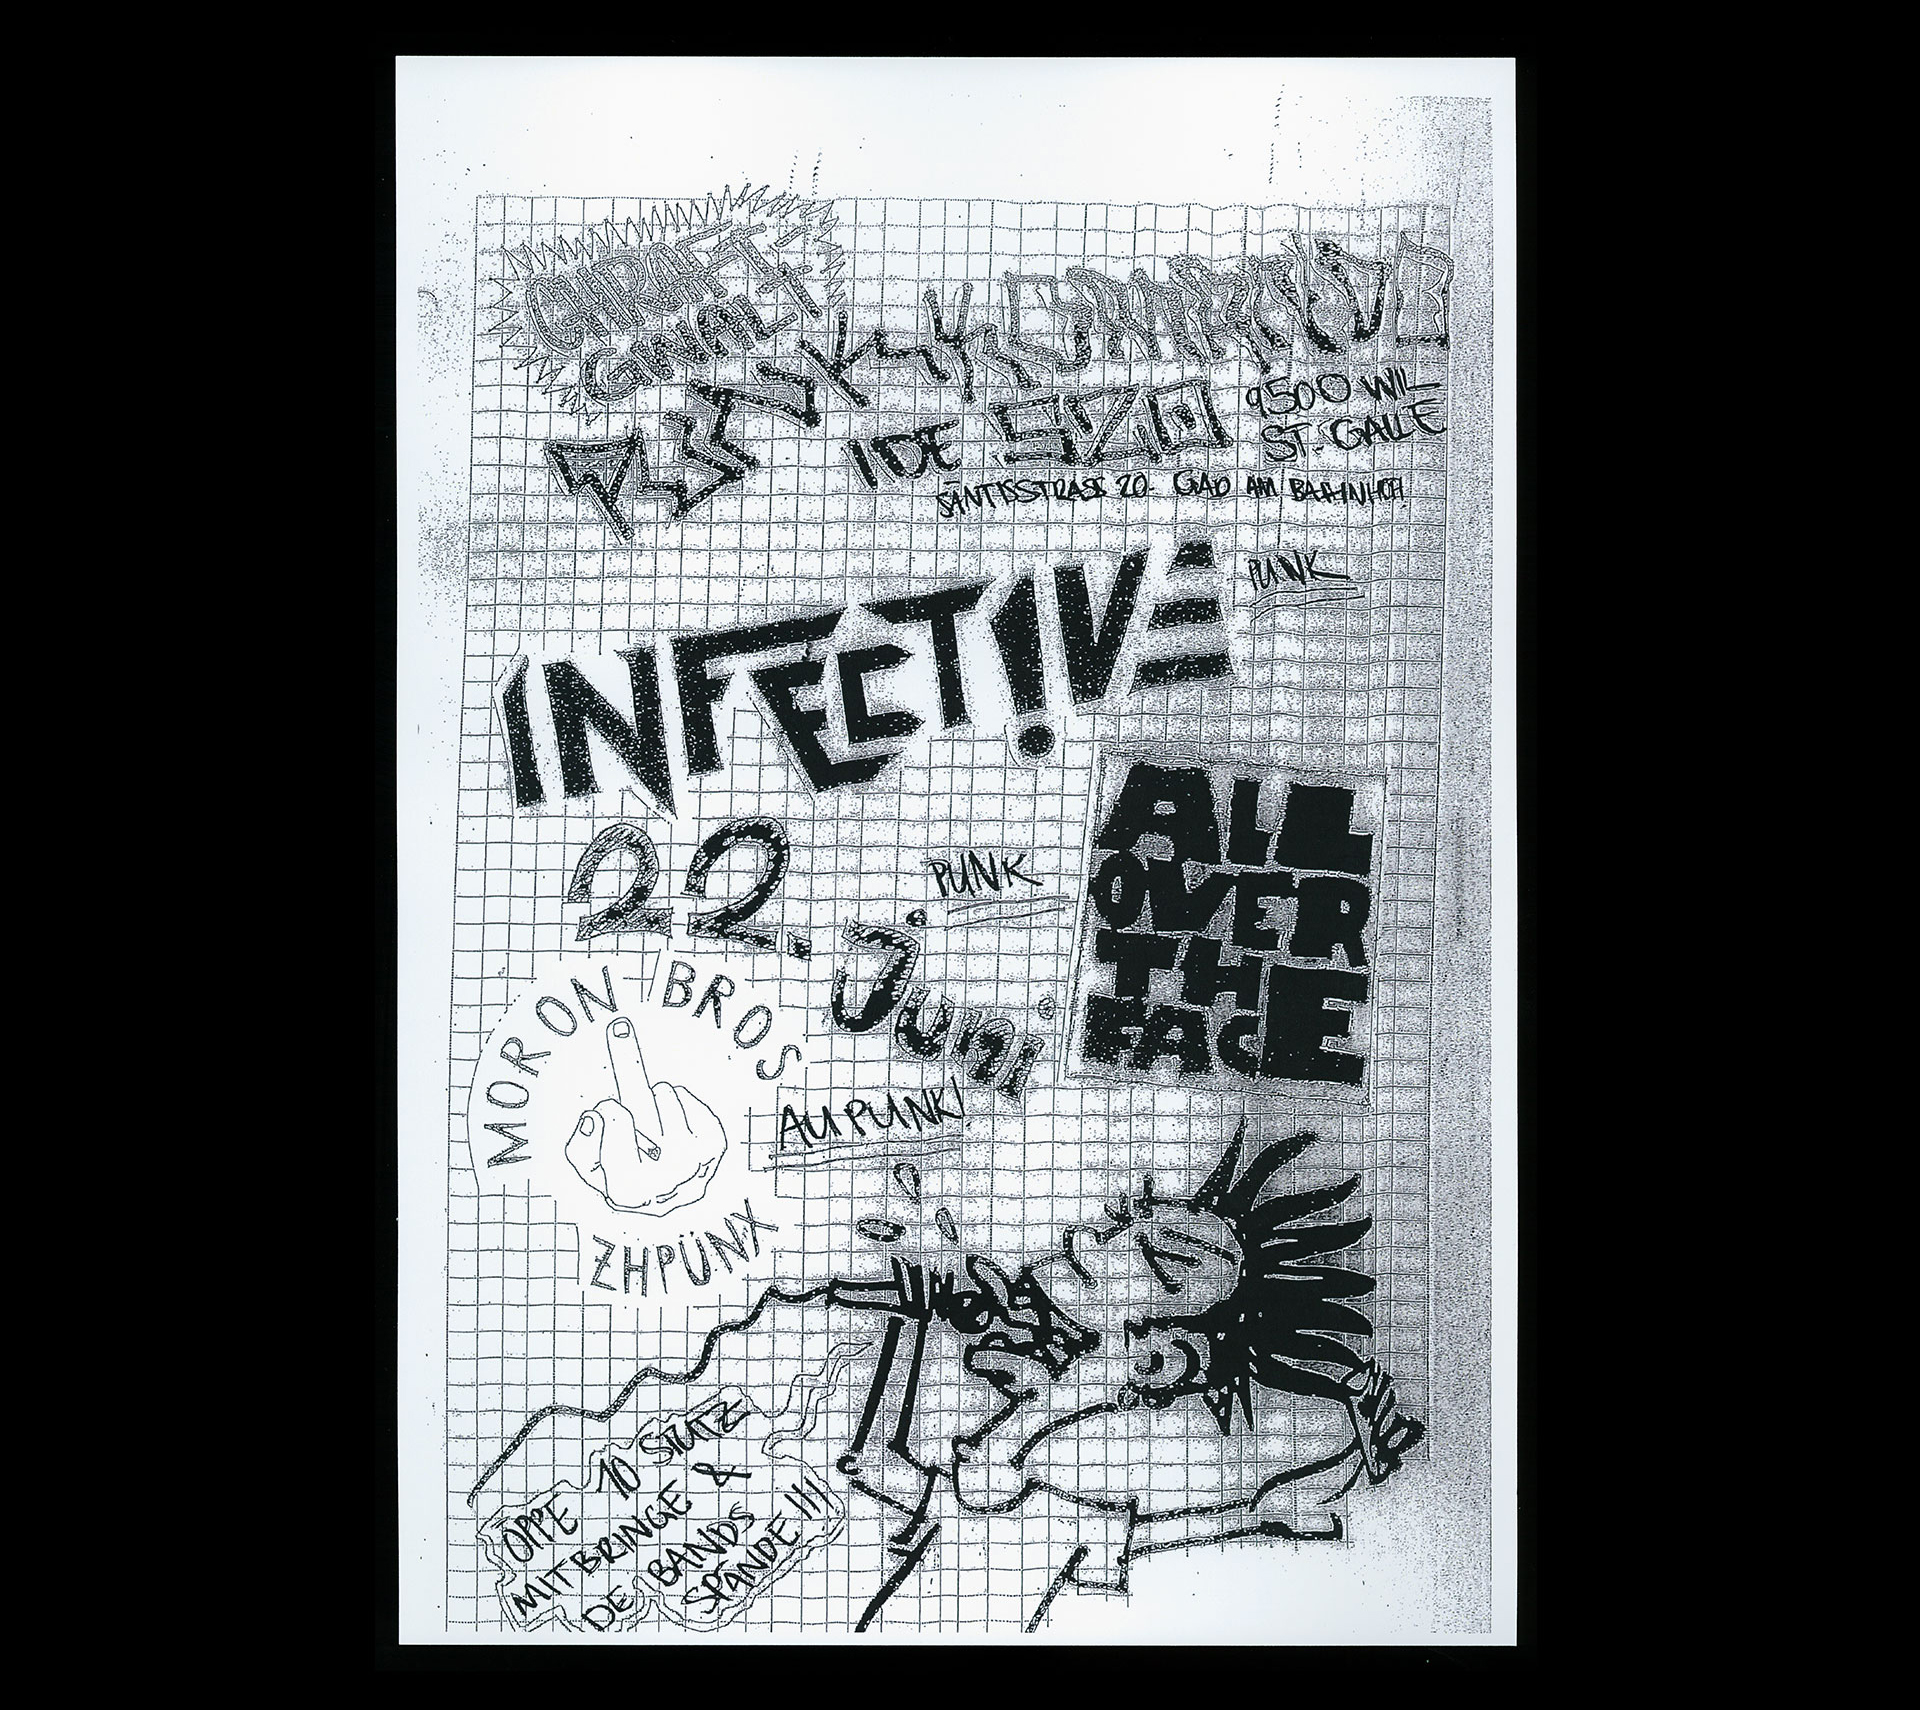 CHRAFT
GWALT
PUNK KONTRAVOB
IDE SZO
9500 WIL
ST. GALLE
SÄNTISSTRASS 20. GAD AM BAHNHOF!
INFECT!VE
PUNK
22. Juni
PUNK
ALL
OVER
THE
FACE
MORON BROS
ZHPÜNX
AU PUNK!
OPPE 10 STUTZ
MITBRINGE &
DE BANDS
SPÄNDE!!!!